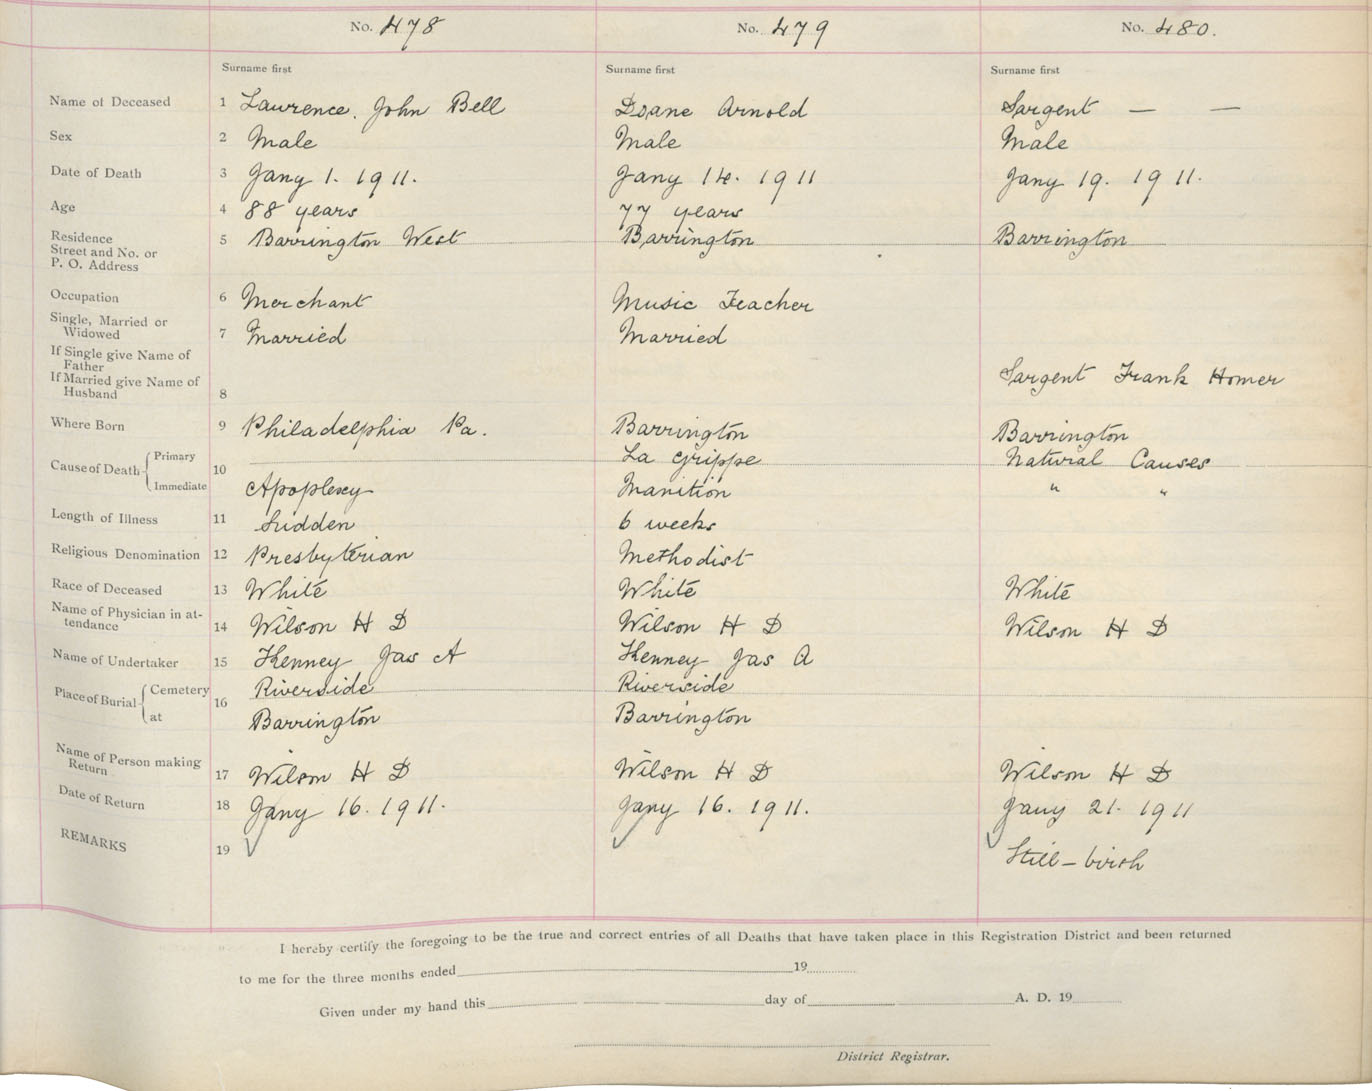 No. 478 No. 479 No. 480.
Surname first Surname first Surname first
Name of Deceased 1 Lawrence. John Bell Doane Arnold Sargent — —
Sex 2 Male Male Male
Date of Death 3 Jany 1. 1911. Jany 14. 1911 Jany 19. 1911.
Age 4 88 years 77 years
Residence
Street and No. or
P. O. Address 5 Barrington West Barrington Barrington
Occupation 6 Merchant Music Teacher
Single, Married or
Widowed 7 Married Married
If Single give Name of
Father
If Married give Name of
Husband 8 Sargent Frank Homer
Where Born 9 Philadelphia Pa. Barrington Barrington
Cause of Death 10 Primary La Grippe Natural Causes
Immediate Apoplexy Inanition " "
Length of Illness 11 Sudden 6 weeks
Religious Denomination 12 Presbyterian Methodist
Race of Deceased 13 White White White
Name of Physician in at-
tendance 14 Wilson H D Wilson H D Wilson H D
Name of Undertaker 15 Kenney Jas A Kenney Jas A
Place of Burial 16 Cemetery Riverside Riverside
at Barrington Barrington
Name of Person making
Return 17 Wilson H D Wilson H D Wilson H D
Date of Return 18 Jany 16. 1911. Jany 16. 1911. Jany 21. 1911
REMARKS 19 ✓ ✓ ✓ Still-birth
I hereby certify the foregoing to be the true and correct entries of all Deaths that have taken place in this Registration District and been returned
to me for the three months ended 19
Given under my hand this day of A. D. 19
District Registrar.